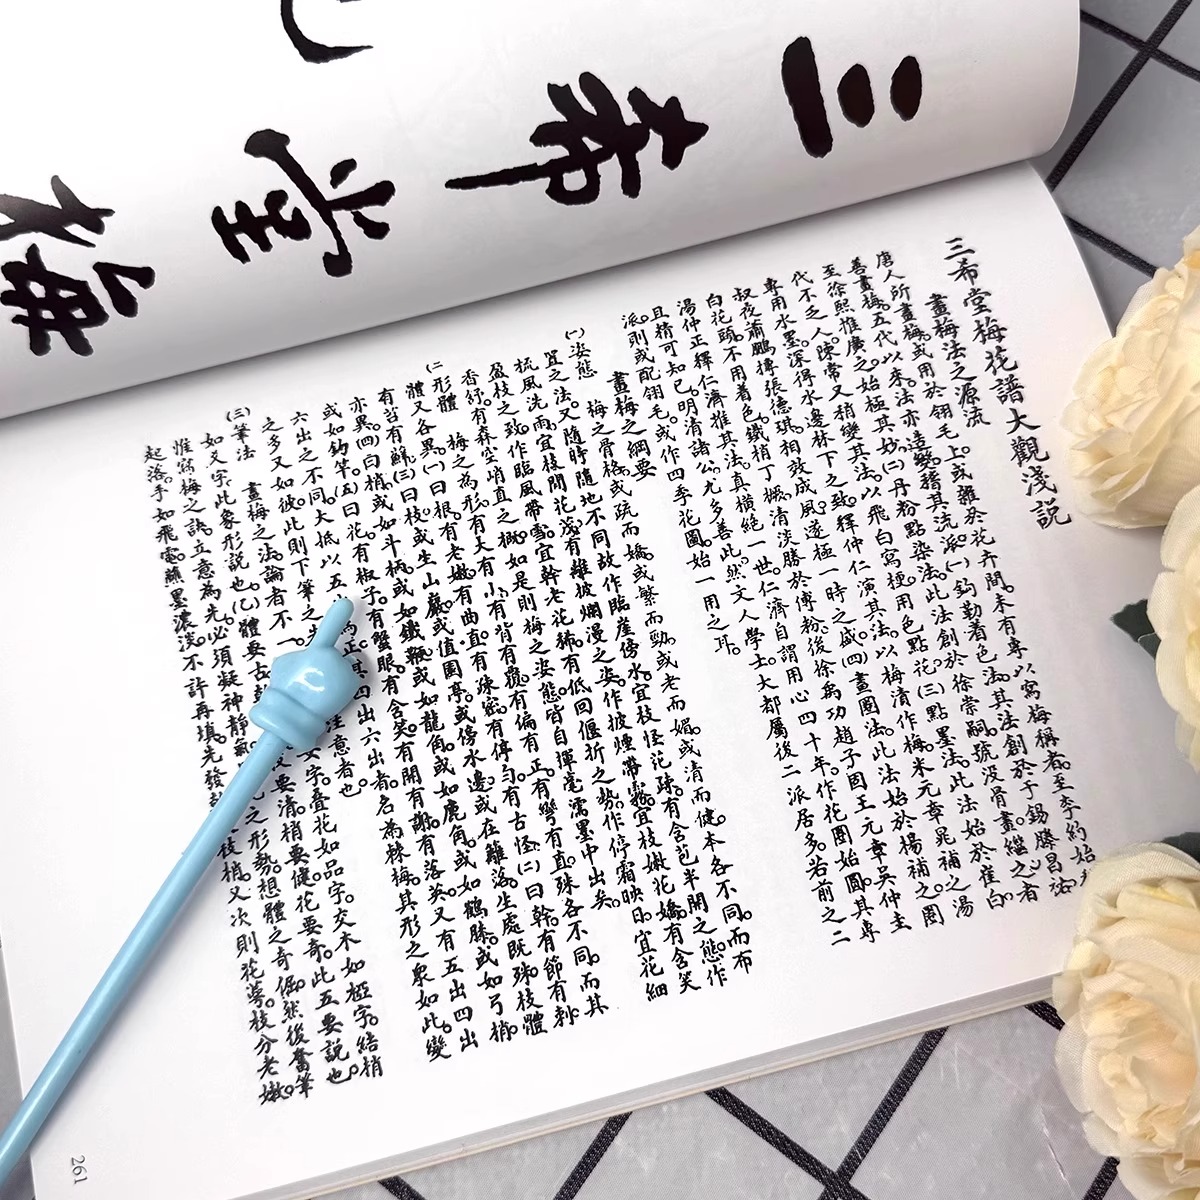 三希堂梅
三希堂梅花譜大觀淺說
畫梅法之源流
唐人所畫梅或用於翎毛上或雜於花卉間未有專以寫梅稱者至李約始
善畫梅五代以來法亦遠藝藉其流派(一)鈎勒着色法其法創於于錫滕昌祐
至徐熙推廣之始極其妙(二)丹粉點染法此法創於徐崇嗣號沒骨畫繼之者
代不乏人陳常又稍變其法以飛白寫梗用色點花(三)點墨法此法始於崔白
專用水墨深得水邊林下之致釋仲仁演其法以梅清作梅米元章晁補之湯
叔夜蕭鵬摶張德琪相效成風遂極一時之盛(四)畫圈法此法始於楊補之圈
白花頭不用着色鐵梢丁橛清淡勝於傅粉後徐禹功趙子固王元章吳仲圭
湯仲正釋仁濟推其法真橫絕一世仁濟自謂用心四十年作花圈始圓其專
且精可知已明清諸公尤多善此然文人學士大都屬後二派居多若前之二
派則或配翎毛或作四季花園始一用之耳
畫梅之綱要
(一)姿態　梅之骨格或疏而嬌或繁而勁或老而媚或清而健本各不同而布
置之法又隨時隨地不同故作臨崖傍水宜枝怪花疎有含苞半開之態作
梳風洗雨宜枝閒花茂有離披爛漫之姿作披煙帶霧宜枝嫩花嬌有含笑
盈枝之致作臨風帶雪宜幹老花稀有低回偃折之勢作停霜映日宜花細
香舒有森空峭直之概如是則梅之姿態皆自揮毫濡墨中出矣
(二)形體　梅之為形有大有小有背有覆有偏有正有彎有直殊各不同而其
體又各異(一)曰根有老嫩有曲直有疎密有停勻有古怪(二)曰幹有節有刺
有苔有蘚(三)曰枝或生山巖或值園亭或傍水邊或在籬落生處既殊枝體
亦異(四)曰梢或如斗柄或如鐵鞭或如龍角或如鹿角或如鶴膝或如弓梢
或如鈎竿(五)曰花有椒子有蟹眼有含笑有開有謝有落英又有五出四出
六出之不同大抵以五為正其四出六出者名為棘梅其形之衆如此變
之多又如彼此則下筆之注意者也
(三)筆法　畫梅之法論者不一字疊花如品字交木如椏字結梢
如爻字此象形說也(乙)體要古要清梢要健花要奇此五要說也
惟寫梅之訣立意為先必須凝神靜氣之形勢想體之奇倔然後奮筆
起落手如飛電蘸墨濃淡不許再填先發枝梢又次則花萼枝分老嫩
261